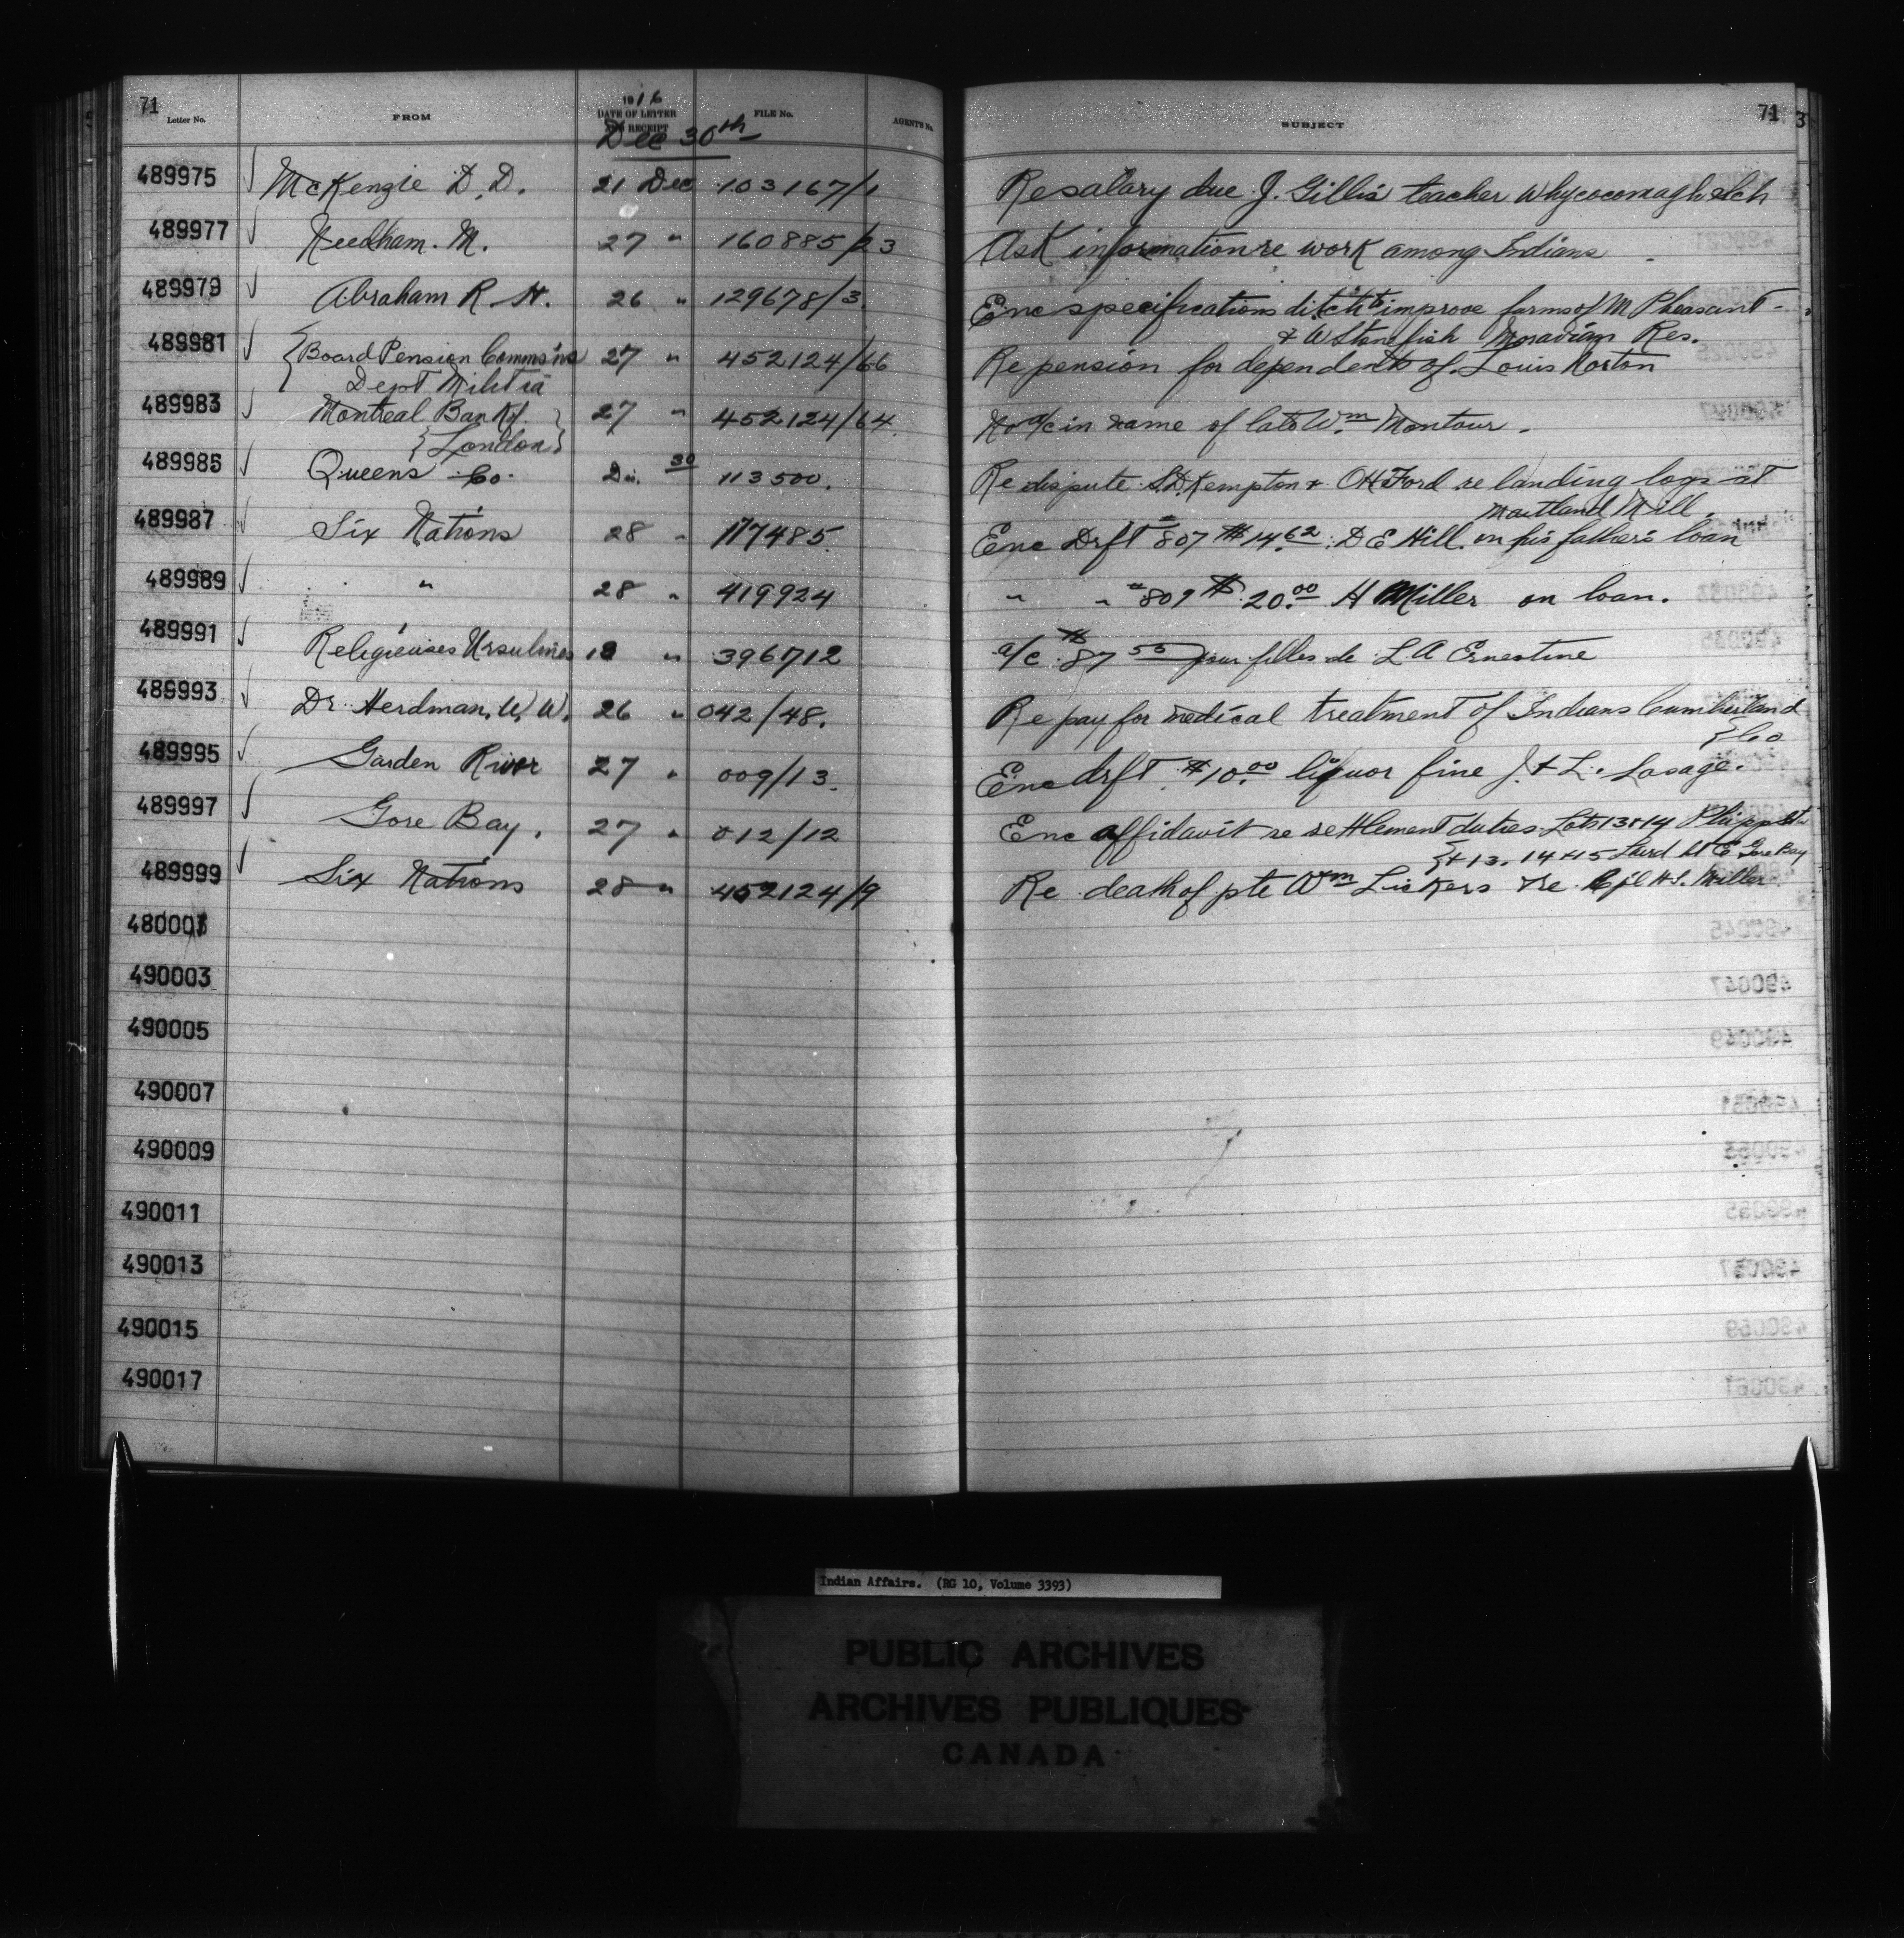 71 71 3
Letter No. FROM 1916 DATE OF LETTER AND RECEIPT FILE No. AGENT'S No. SUBJECT
Dec 30th
489975 ✓ McKenzie D. D. 21 Dec 103167/1 Re salary due J. Gillis teacher Whycocomagh Sch
489977 ✓ Needham. M. 27 " 160885/23 Ask information re work among Indians
489979 ✓ Abraham R. H. 26 " 129678/3. Enc specifications ditch to improve farms of M Pheasant -
& W Stonefish Moravian Res.
489981 ✓ {Board Pension Commsins 27 " 452124/66 Re pension for dependents of Louis Norton
Dept Militia
489983 ✓ Montreal Bank of 27 " 452124/64 No a/c in name of late Wm Montour.
{London}
489985 ✓ Queens Co. 30 113500. Re dispute S.D. Kempton & O H Ford re landing logs at
Maitland Mill.
489987 ✓ Six Nations 28 " 117485. Enc Drft 807 $14.62 D E Hill on his father's loan
489989 ✓ " 28 " 419924 " " 809 $20.00 H Miller on loan.
489991 ✓ Religieuses Ursulines 18 " 396712 a/c $87 pour filles de L. A Ernestine
489993 ✓ Dr. Herdman, W. W. 26 " 042/48. Re pay for medical treatment of Indians Cumberland
{Co
489995 ✓ Garden River 27 " 009/13. Enc drft $10.00 liquor fine J. & L. Lasage.
489997 ✓ Gore Bay. 27 " 012/12 Enc affidavit re settlement duties Lots 13 & 14 Phipps St
{& 13. 14 & 15 Laird St E Gore Bay
489999 ✓ Six Nations 28 " 452124/9 Re death of pte Wm Lickers & re H.S. Miller
490003
490005
490007
490009
490011
490013
490015
490017
Indian Affairs. (RG 10, Volume 3393)
PUBLIC ARCHIVES
ARCHIVES PUBLIQUES
CANADA